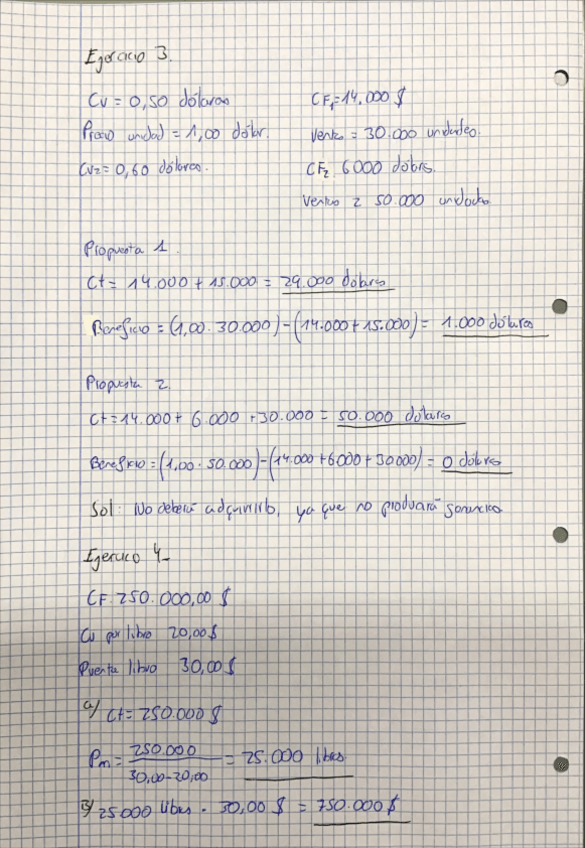 Ejercicio 3.
Cv = 0,50 dólares
CF₁=14.000 $
Precio unidad = 1,00 dólar.
Ventas = 30.000 unidades.
Cv₂= 0,60 dólares.
CF₂ 6000 dólares.
Ventas 2 50.000 unidades
Propuesta 1.
Ct = 14.000 + 15.000 = 29.000 dólares
Beneficio = (1,00 · 30.000) - (14.000 + 15.000) = 1.000 dólares
Propuesta 2.
Ct = 14.000 + 6.000 + 30.000 = 50.000 dólares
Beneficio = (1,00 · 50.000) - (14.000 + 6000 + 30000) = 0 dólares
Sol: No deberá adquirirlo, ya que no producirá ganancias
Ejercicio 4_
CF. 250.000,00 $
Cv por libro 20,00$
Pventa libro 30,00$
a) Ct = 250.000 $
Pm = 250.000 / 30,00-20,00 = 25.000 libros
b) 25000 libros · 30,00 $ = 750.000 $